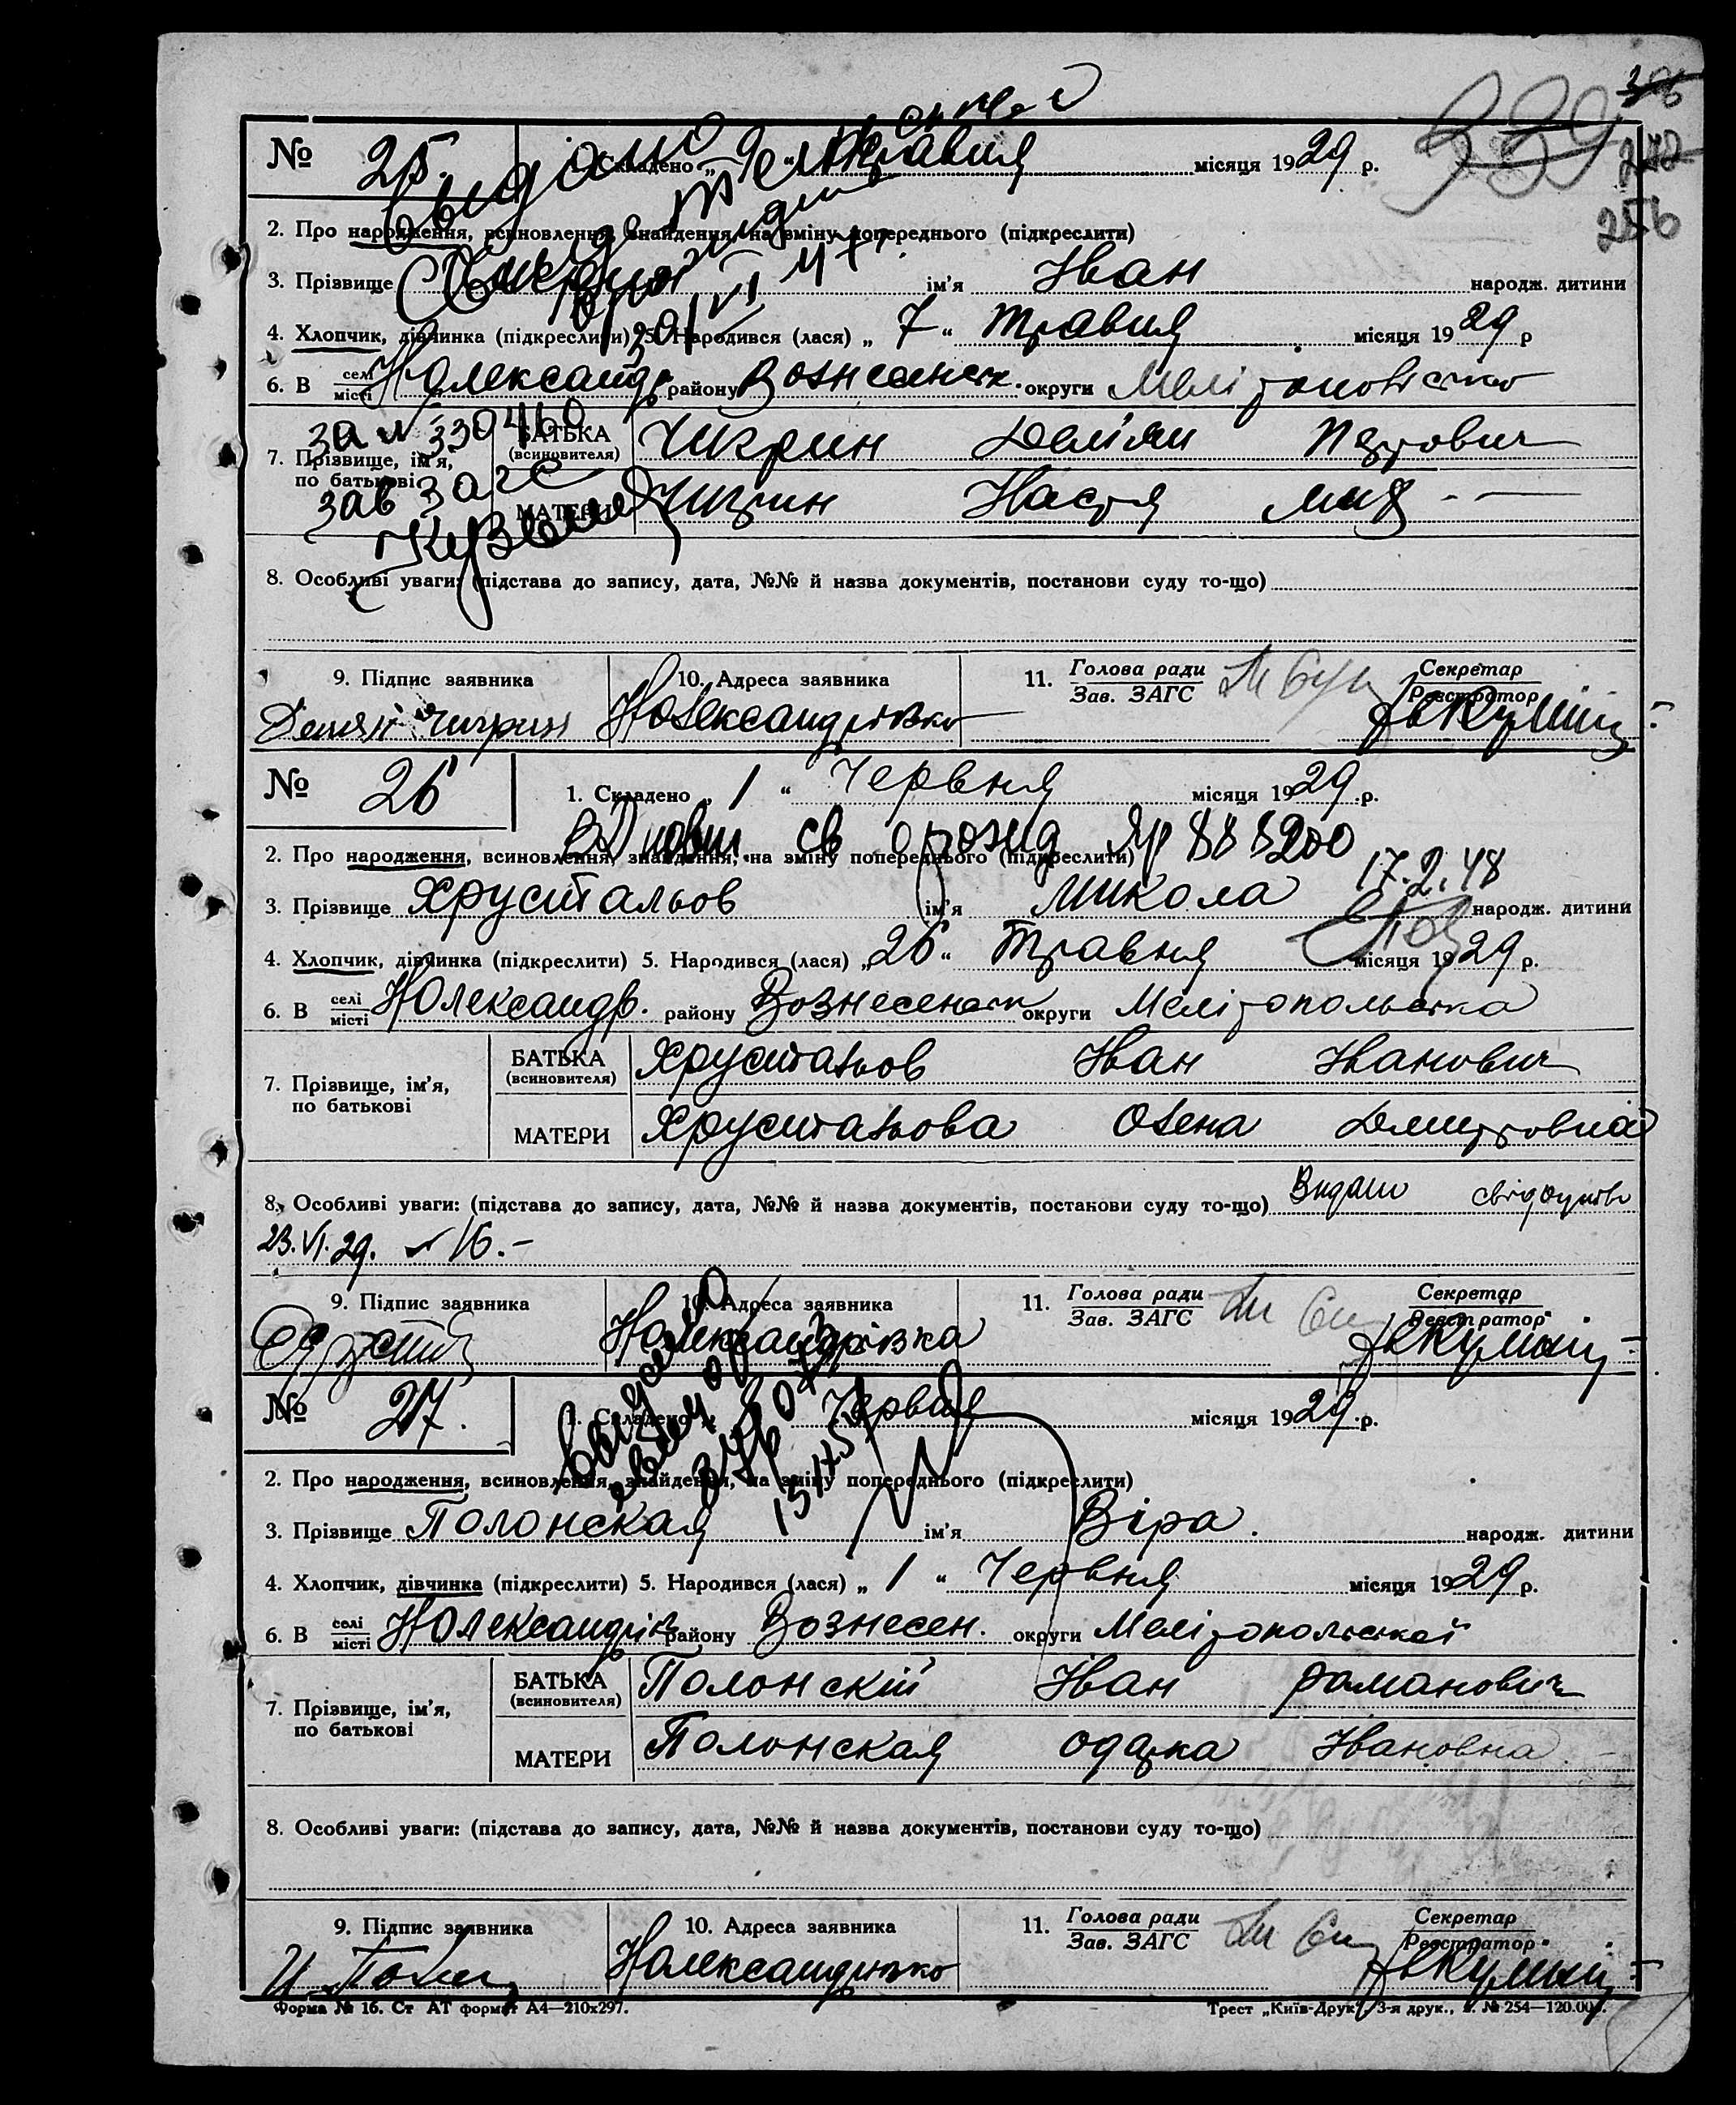 339
242
256
№ 25. Складено „ 9 " Травня місяця 1929 р.
2. Про народження, всиновлення, знайдення, на зміну попереднього (підкреслити)
3. Прізвище ім'я Іван народж. дитини
4. Хлопчик, дівчинка (підкреслити) 5. Народився (лася) „ 7 " травня місяця 1929 р
6. В селі місті НОлександр. району Вознесенськ. округи
за № 330460
7. Прізвище, ім'я, по батькові
БАТЬКА (всиновителя) Чигрин Демян Петрович
МАТЕРИ Чигрин Настя
зав загс
8. Особливі уваги: (підстава до запису, дата, №№ й назва документів, постанови суду то-що)
9. Підпис заявника 10. Адреса заявника 11. Голова ради Зав. ЗАГС Секретар Реєстратор
Демян Чигрин НОлександрівка
№ 26 1. Складено „ 1 " Червня місяця 1929 р.
888200
2. Про народження, всиновлення, знайдення, на зміну попереднього (підкреслити)
17.2.48
3. Прізвище Хрустальов ім'я Микола народж. дитини
4. Хлопчик, дівчинка (підкреслити) 5. Народився (лася) „ 26 " Травня місяця 1929 р.
6. В селі місті НОлександр. району Вознесенськ округи Мелітопольська
7. Прізвище, ім'я, по батькові
БАТЬКА (всиновителя) Хрустальов Іван Іванович
МАТЕРИ Хрустальова Олена Дмитровна
8. Особливі уваги: (підстава до запису, дата, №№ й назва документів, постанови суду то-що) Видано свідоцтво
23.VI.29. № 16.-
9. Підпис заявника 10. Адреса заявника 11. Голова ради Зав. ЗАГС Секретар Реєстратор
НОлександрівка
№ 27. 1. Складено „ Червня місяця 1929 р.
2. Про народження, всиновлення, знайдення, на зміну попереднього (підкреслити)
3. Прізвище Полонская ім'я Віра. народж. дитини
4. Хлопчик, дівчинка (підкреслити) 5. Народився (лася) „ 1 " Червня місяця 1929 р.
6. В селі місті НОлександрів району Вознесен. округи Мелітопольської
7. Прізвище, ім'я, по батькові
БАТЬКА (всиновителя) Полонскій Іван Романович
МАТЕРИ Полонская Одарка Івановна
8. Особливі уваги: (підстава до запису, дата, №№ й назва документів, постанови суду то-що)
9. Підпис заявника 10. Адреса заявника 11. Голова ради Зав. ЗАГС Секретар Реєстратор
НОлександрівка
Форма № 16. Ст АТ формат А4—210х297. Трест „Київ-Друк", 3-я друк., з. № 254—120.000.